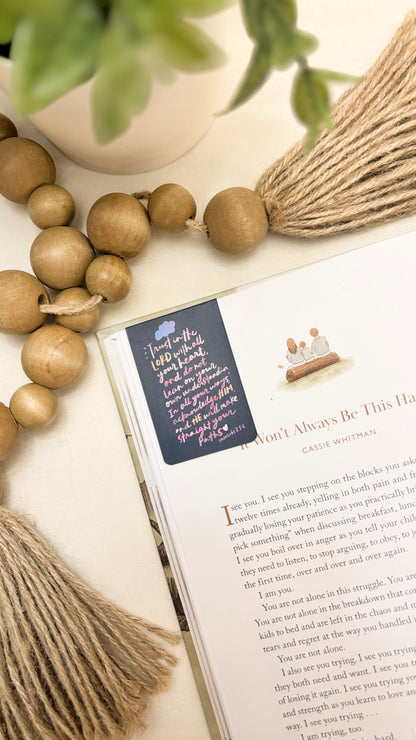 Trust in the
LORD with all
your heart,
and do not
lean on your
own understanding.
In all your ways
acknowledge HIM,
and HE will make
straight your
Paths
It Won't Always Be This Ha
CASSIE WHITMAN
I see you. I see you stepping on the blocks you aske
twelve times already, yelling in both pain and fr
gradually losing your patience as you practically
pick something" when discussing breakfast, lunc
I see you boil over in anger as you tell your chil
they need to listen, to stop arguing, to obey, to
the first time, over and over and over again.
I am you.
You are not alone in this struggle. You are
You are not alone in the breakdown that co
kids to bed and are left in the chaos and
tears and regret at the way you handled i
You are not alone.
I also see you trying. I see you trying
they both need and want. I see you
of losing it again. I see you trying
and strength as you learn to love
way. I see you trying . . .
I am trying, too.